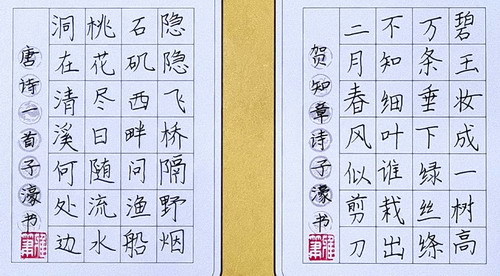 碧玉妆成一树高
万条垂下绿丝绦
不知细叶谁裁出
二月春风似剪刀
贺知章诗子濠书
隐隐飞桥隔野烟
石矶西畔问渔船
桃花尽日随流水
洞在清溪何处边
唐诗一首子濠书